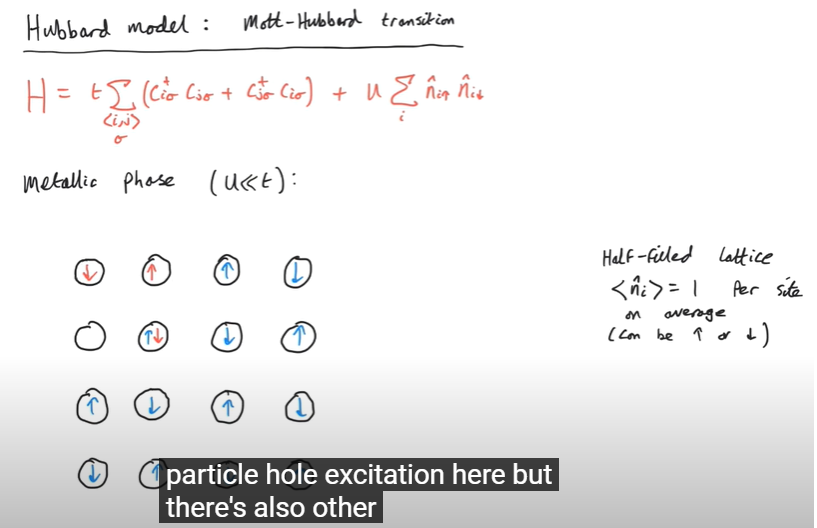 Hubbard model : Mott-Hubbard transition
H = t Σ (c†iσ cjσ + c†jσ ciσ) + u Σ n̂i↑ n̂i↓
<i,j> i
σ
Metallic phase (u≪t):
Half-filled lattice
<n̂i> = 1 per site
on average
(can be ↑ or ↓)
↓ ↑ ↑ ↓
↑↓ ↓ ↑
↑ ↓ ↑ ↓
↓ ↑
particle hole excitation here but
there's also other